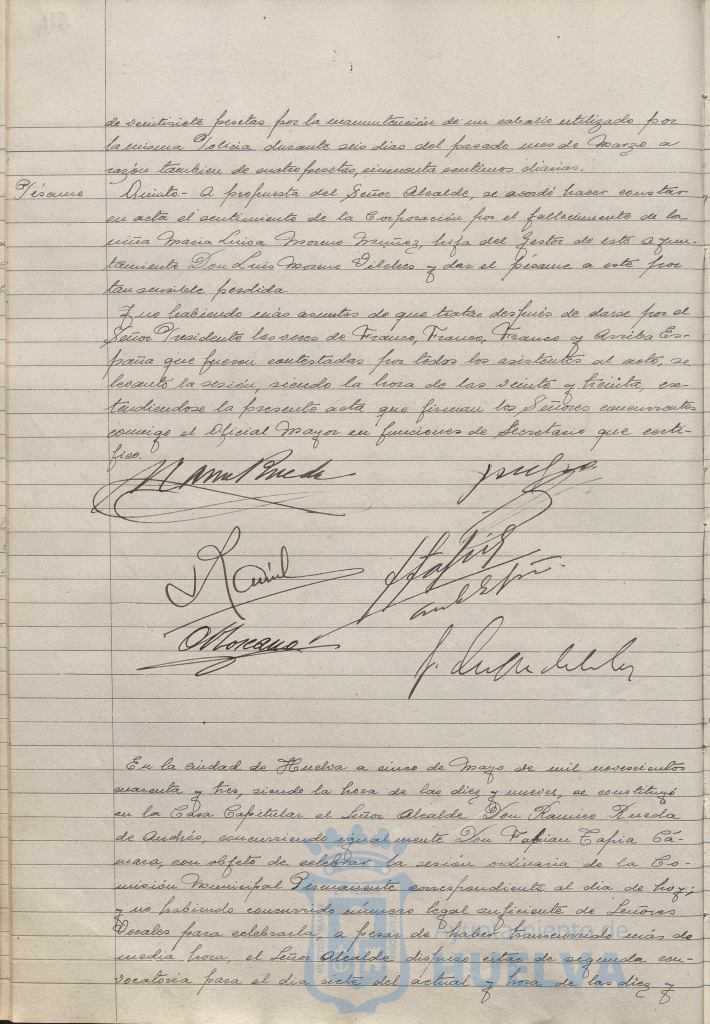 de veintisiete pesetas por la manutención de un caballo utilizado por
la misma Policia durante seis dias del pasado mes de Marzo a
razón tambien de cuatro pesetas, cincuenta centimos diarias.
Pésame
Quinto.- A propuesta del Señor Alcalde, se acordó hacer constar
en acta el sentimiento de la Corporación por el fallecimiento de la
niña Maria Luisa Moreno Muñoz, hija del Gestor de este Ayun-
tamiento Don Luis Moreno Vilches y dar el pésame a este por
tan sensible perdida.
Y no habiendo más asuntos de que tratar despues de darse por el
Señor Presidente las voces de Franco, Franco, Franco y Arriba Es-
paña que fueron contestadas por todos los asistentes al acto, se
levantó la sesión, siendo la hora de las veinte y treinta, ex-
tendiendose la presente acta que firman los Señores concurrentes
conmigo el Oficial Mayor en funciones de Secretario que certi-
fico.
Rueda
Moreano
En la ciudad de Huelva a cinco de Mayo de mil novecientos
cuarenta y tres, siendo la hora de las diez y nueve, se constituyó
en la Casa Capitular el Señor Alcalde Don Ramiro Rueda
de Andrés, concurriendo igualmente Don Fabian Tapia Cá-
mara, con objeto de celebrar la sesión ordinaria de la Co-
misión Municipal Permanente correspondiente al dia de hoy;
y no habiendo concurrido número legal suficiente de Señores
Vocales para celebrarla, a pesar de haber transcurrido más de
media hora, el Señor Alcalde dispuso citar de segunda con-
vocatoria para el dia siete del actual y hora de las diez y
Ayuntamiento de
HUELVA